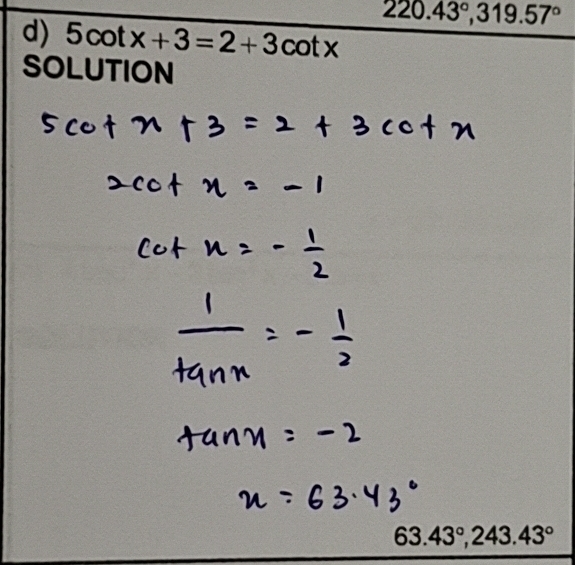 220.43°,319.57°
d) 5cotx+3=2+3cotx
SOLUTION
5cot x + 3 = 2 + 3cot x
2cot x = -1
cot x = - 1/2
1/tanx = - 1/2
tanx = -2
x = 63.43°
63.43°,243.43°